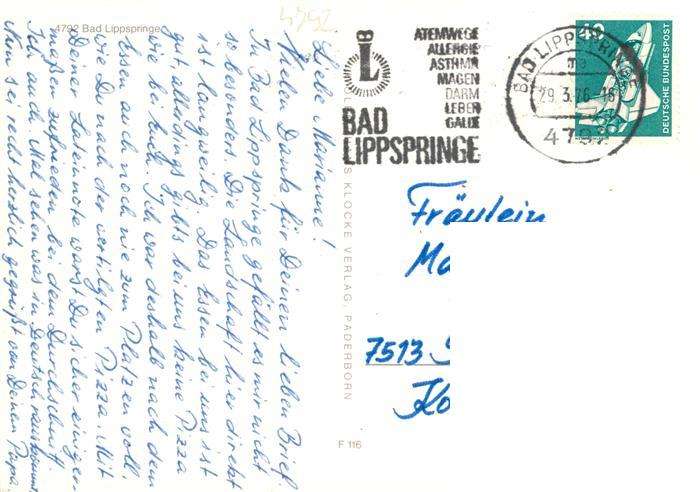 4792 Bad Lippspringe
4792
Liebe Marianne!
Vielen Dank für Deinen lieben Brief.
In Bad Lippspringe gefällt es mir nicht
so besonders. Die Landschaft hier direkt
ist langweilig. Das Essen bei uns ist
gut, allerdings gibts bei uns keine Pizza
wie bei Euch. Ich war deshalb nach dem
Essen auch noch nie zum Platzen voll,
wie Du nach der vertilgten Pizza. Mit
Deiner Lateinnote warst Du sicher einiger-
maßen zufrieden bei dem Durchschnitt.
Ich auch. Mal sehen was in Deutsch rauskommt.
Nun sei recht herzlich gegrüßt von Deinem Papa.
KLOCKE VERLAG, PADERBORN
F 116
L
BAD
LIPPSPRINGE
ATEMWEGE
ALLERGIE
ASTHMA
MAGEN
DARM
LEBER
GALLE
BAD LIPPSPRINGE
ma
29.3.76-18
4792
40
DEUTSCHE BUNDESPOST
Fräulein
Ma
7513
Ko